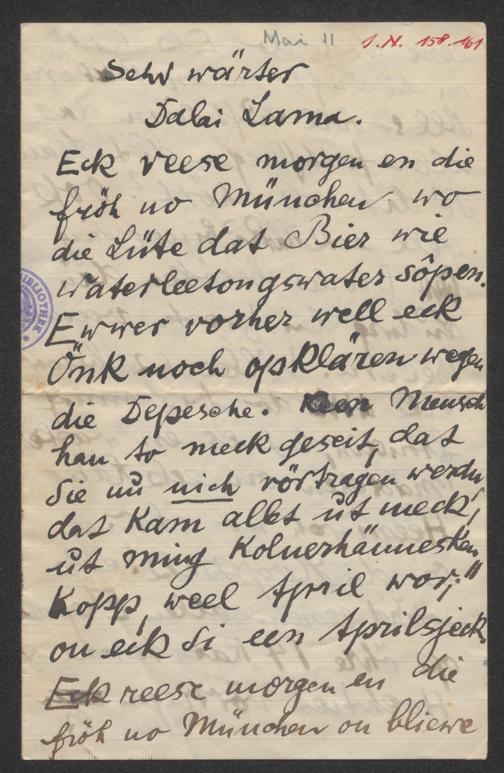 Mai 11
I.N. 158.161
Sehr wärter
Dalai Lama.
Eck reese morgen en die
fröh no München wo
die Lüte dat Bier wie
waterleetongswater sôpen.
BIBLIOTHEK
Ewwer vorher well eck
Önk noch opklären wegen
die Depesche. Keen Mensch
han to meck geseit, dat
Sie nu nich vörtragen werdn,
dat kam alles ut meck,
ut ming Kolnerhännesken
Kopp, weel April wor,
on eck Si een Aprilsjeck.
Eck reese morgen en die
fröh no München on bliewe